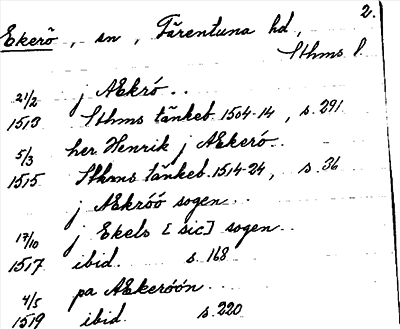 2.
Ekerö, sn, Färentuna hd,
Sthms l.
21/2 j Ækró..
1513 Sthms tänkeb. 1504-14, s. 291
5/3 her Henrik j Ækeró..
1515 Sthms tänkeb. 1514-24, s. 36
j Ækróó sogen..
17/10 j Ekels [sic] sogen..
1517 ibid. s. 168
4/5 pa Ækeróón..
1519 ibid. s. 220